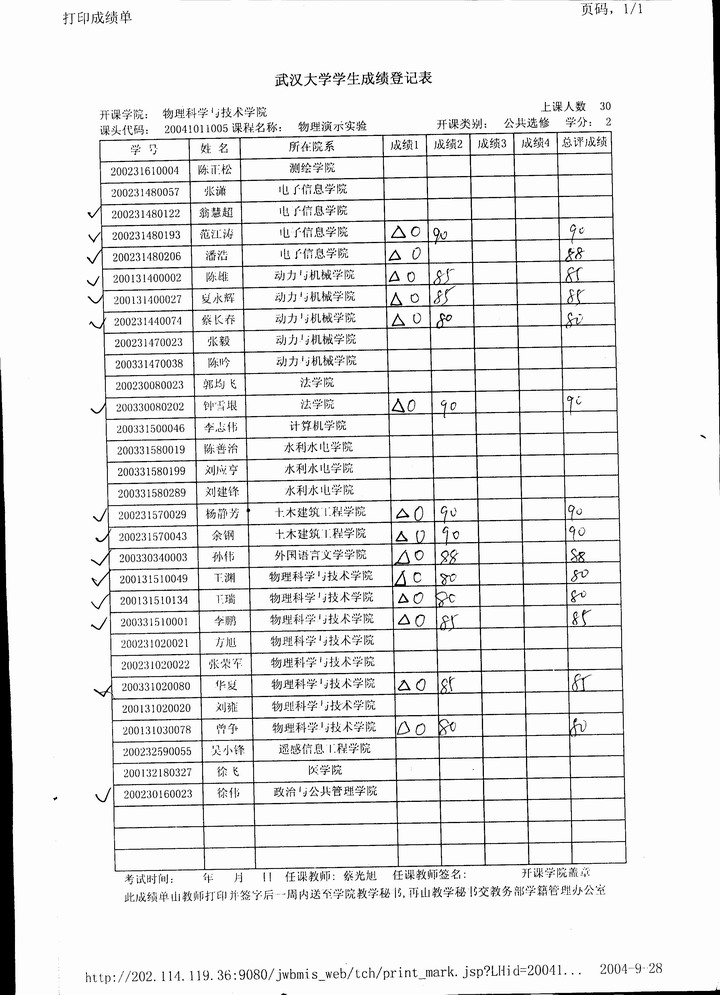 打印成绩单
页码，1/1
武汉大学学生成绩登记表
开课学院： 物理科学与技术学院 上课人数 30
课头代码： 20041011005 课程名称： 物理演示实验 开课类别： 公共选修 学分： 2
学号 姓名 所在院系 成绩1 成绩2 成绩3 成绩4 总评成绩
200231610004 陈正松 测绘学院
200231480057 张潇 电子信息学院
✓ 200231480122 翁慧超 电子信息学院
✓ 200231480193 范江涛 电子信息学院 △ O 90 90
✓ 200231480206 潘浩 电子信息学院 △ O 88
✓ 200131400002 陈雄 动力与机械学院 △ O 85 85
✓ 200131400027 夏永辉 动力与机械学院 △ O 85 85
✓ 200231440074 蔡长春 动力与机械学院 △ O 80 80
200231470023 张毅 动力与机械学院
200331470038 陈吟 动力与机械学院
200230080023 郭均飞 法学院
✓ 200330080202 钟雪垠 法学院 △ O 90 90
200331500046 李志伟 计算机学院
200331580019 陈善治 水利水电学院
200331580199 刘应亨 水利水电学院
200331580289 刘建锋 水利水电学院
✓ 200231570029 杨静芳 土木建筑工程学院 △ O 90 90
✓ 200231570043 余钢 土木建筑工程学院 △ O 90 90
✓ 200330340003 孙伟 外国语言文学学院 △ O 88 88
✓ 200131510049 王渊 物理科学与技术学院 △ O 80 80
✓ 200131510134 王瑞 物理科学与技术学院 △ O 80 80
✓ 200331510001 李鹏 物理科学与技术学院 △ O 85 85
200231020021 方旭 物理科学与技术学院
200231020022 张荣军 物理科学与技术学院
✓ 200331020080 华夏 物理科学与技术学院 △ O 85 85
200131020020 刘雍 物理科学与技术学院
200131030078 曾争 物理科学与技术学院 △ O 80 80
200232590055 吴小锋 遥感信息工程学院
200132180327 徐飞 医学院
✓ 200230160023 徐伟 政治与公共管理学院
考试时间： 年 月 日 任课教师：蔡光旭 任课教师签名： 开课学院盖章
此成绩单由教师打印并签字后一周内送至学院教学秘书，再由教学秘书交教务部学籍管理办公室
http://202.114.119.36:9080/jwbmis_web/tch/print_mark.jsp?LHid=20041... 2004-9-28